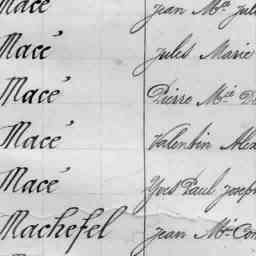 Macé Jean Mie Jule
Macé Jules Marie
Macé Pierre Mie
Macé Valentin Alex
Macé Yves Paul Joseph
Machefel Jean Mie Con